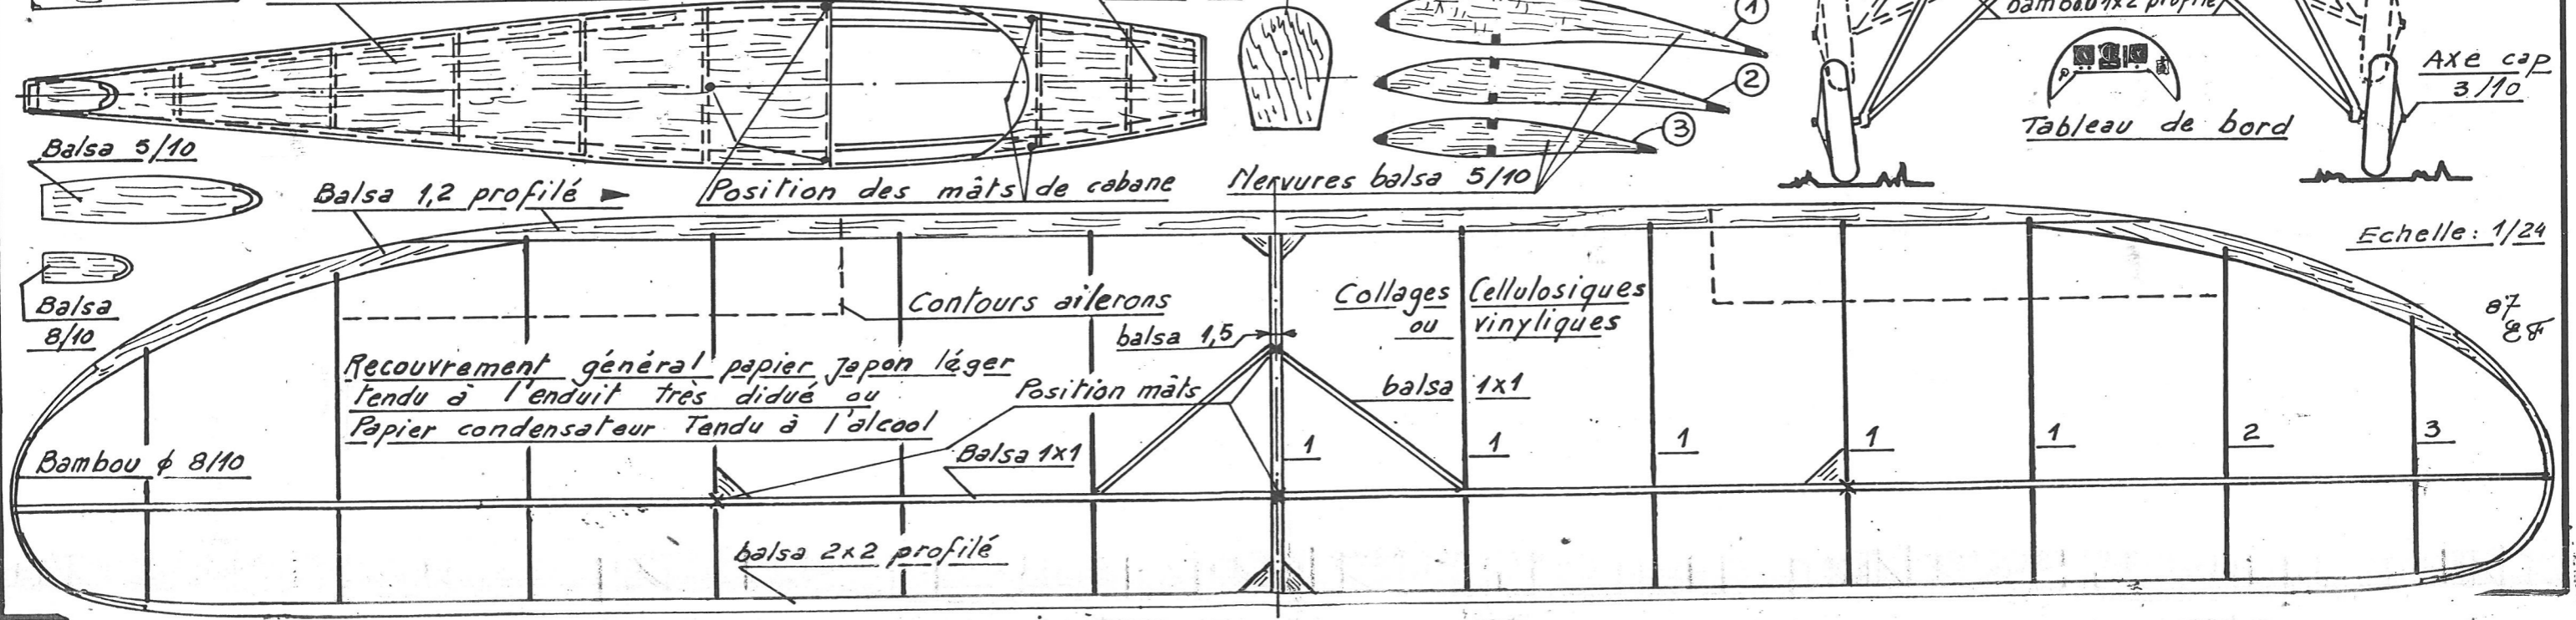 bambou 1x2 profilé
1
2
3
Axe cap
3/10
Tableau de bord
Balsa 5/10
Balsa 1,2 profilé
Position des mâts de cabane
Nervures balsa 5/10
Echelle: 1/24
Balsa
8/10
Contours ailerons
Collages Cellulosiques
ou vinyliques
87
EF
balsa 1,5
Recouvrement général papier Japon léger
tendu à l'enduit très didué ou
Papier condensateur Tendu à l'alcool
Position mâts
balsa 1x1
Bambou ϕ 8/10
Balsa 1x1
1
1
1
1
1
2
3
balsa 2x2 profilé